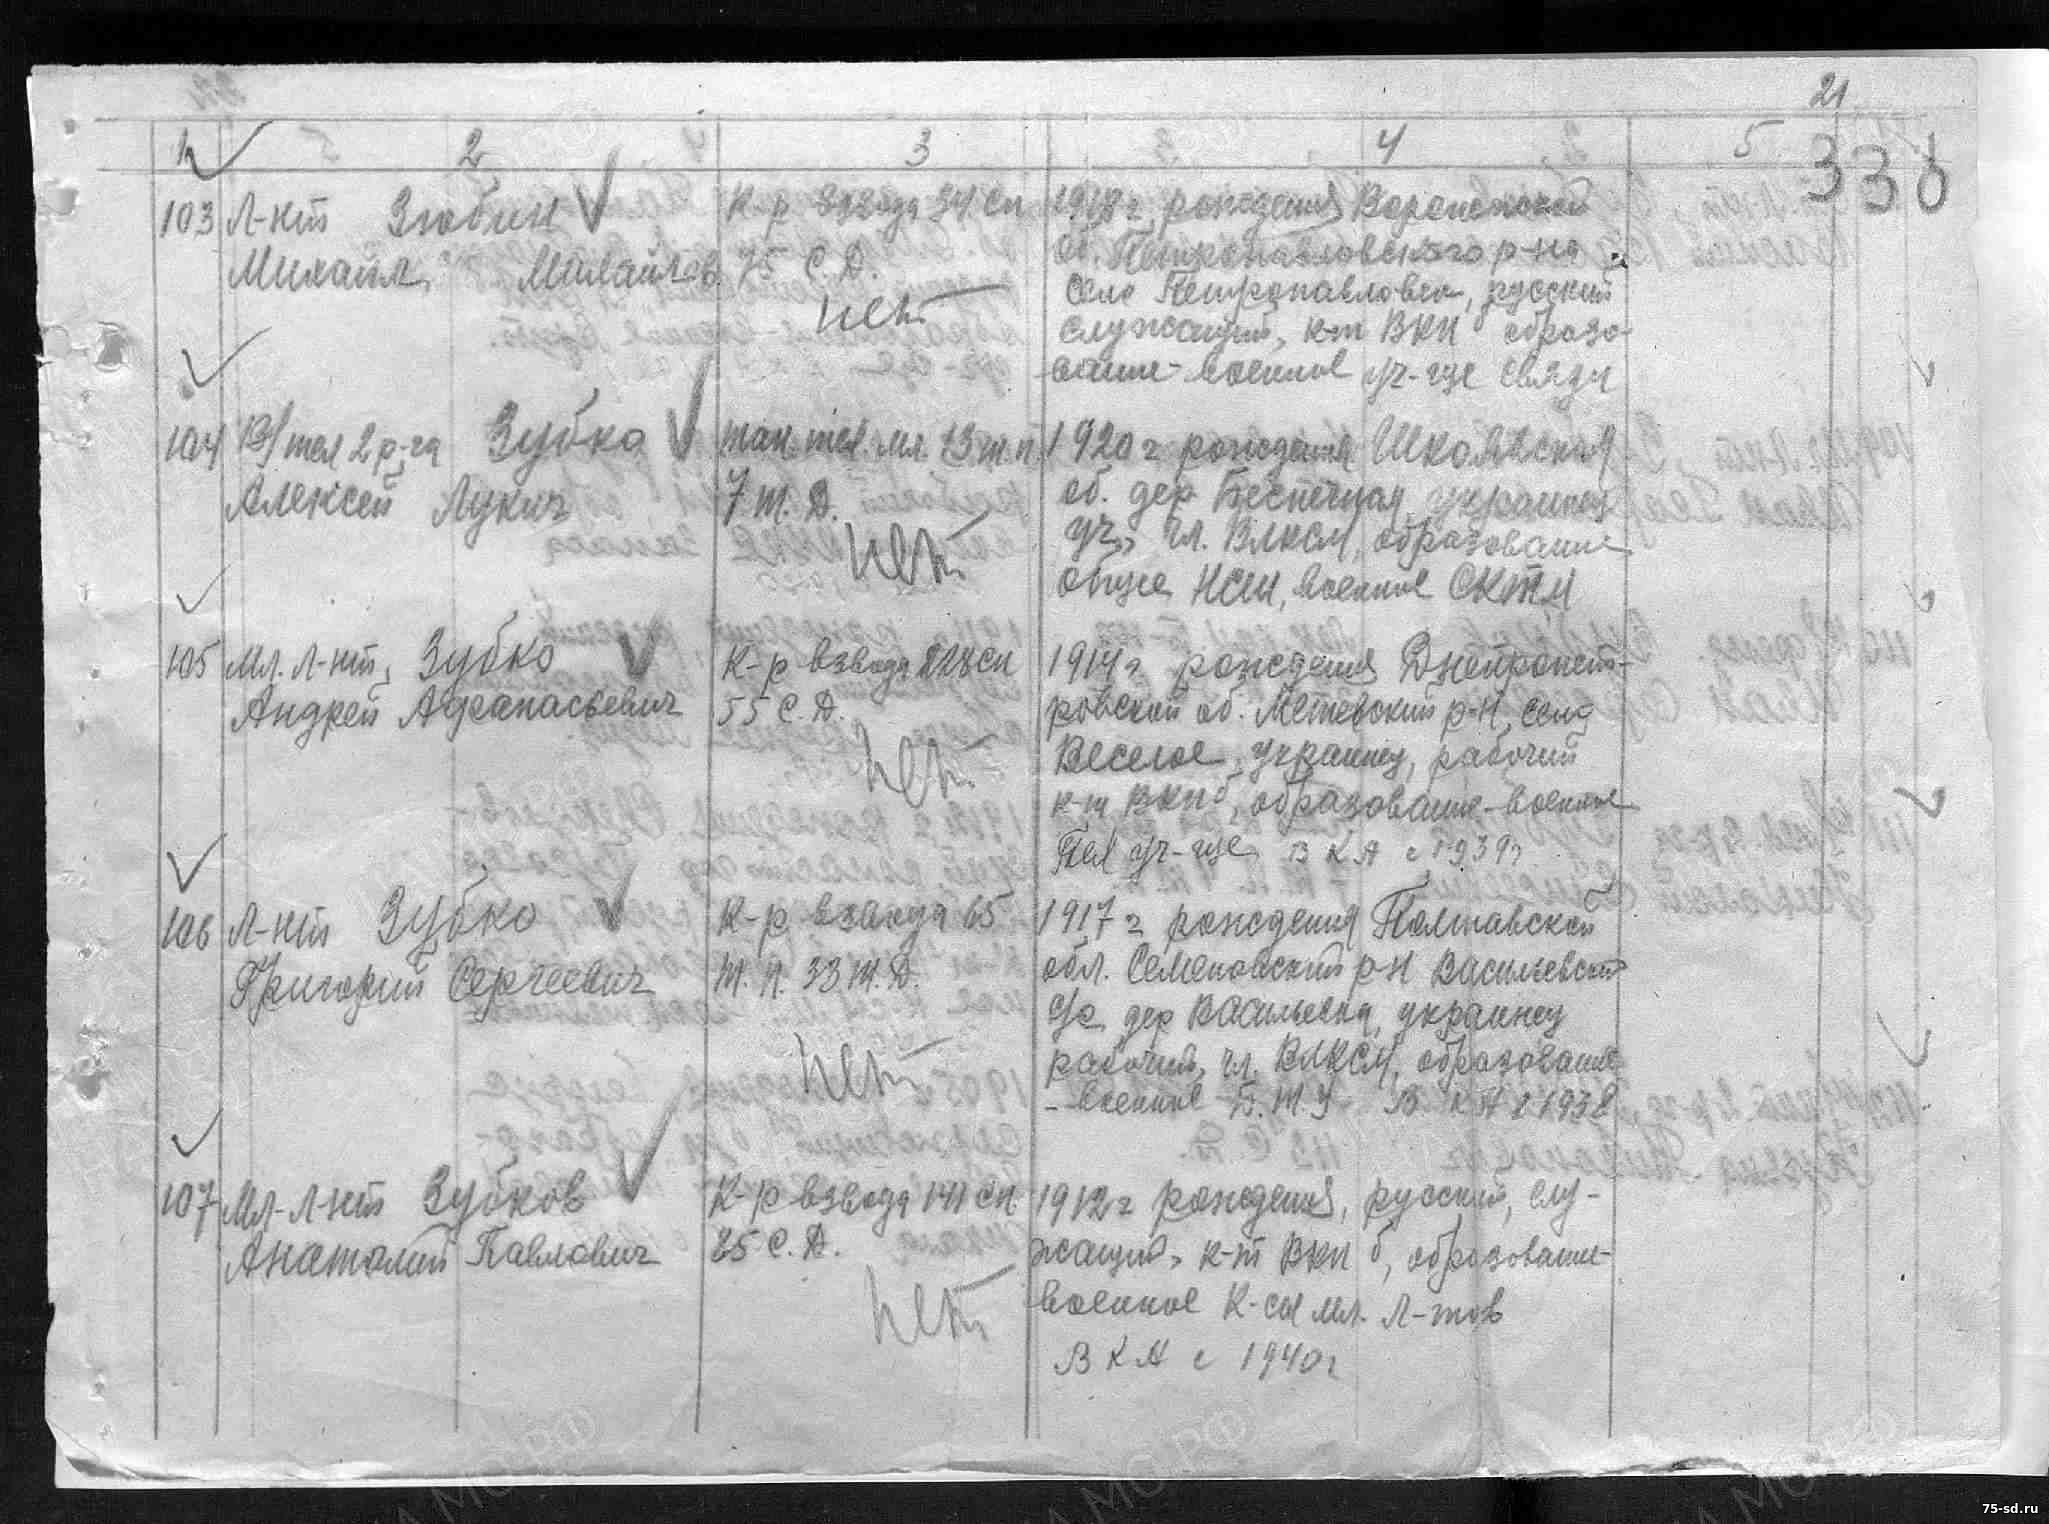 21
1 2 3 4 5
338
103 Л-нт Зюбин К-р взвода 34 сп 1918 г рождения Воронежской
Михаил Михайлов. 75 С.Д. об. Петропавловского р-на
нет село Петропавловск, русский
служащий, к-т ВКП б образо-
вание - военное уч-ще связи
104 В/тех 2 р-га Зубко тан. тех. мл. 13 т.п. 1920 г рождения
Алексей Лукич 7 т.Д. об. дер Беспечная, украинец
нет уч., чл. ВЛКСМ, образование
общее НСШ, военное
105 Мл. Л-нт, Зубко К-р взвода 228 сп 1914 г рождения Днепропет-
Андрей Афанасьевич 55 С.Д. ровской об. р-н, село
нет Веселое, украинец, рабочий
к-т ВКП б, образование - военное
уч-ще В КА с 1939 г
106 Л-нт Зубко К-р взвода 65 1917 г рождения Полтавской
Григорий Сергеевич т.п. 33 т.Д. обл. Семеновский р-н Васильевский
с/с дер Васильевка, украинец
нет рабочий, чл. ВЛКСМ, образование
- военное Б.Т.У В КА с 1938
107 Мл-Л-нт Зубков К-р взвода 141 сп 1912 г рождения, русский, слу-
Анатолий Павлович 85 С.Д. жащий, к-т ВКП б, образование-
нет военное К-сы мл. Л-тов
В КА с 1940 г
75-sd.ru